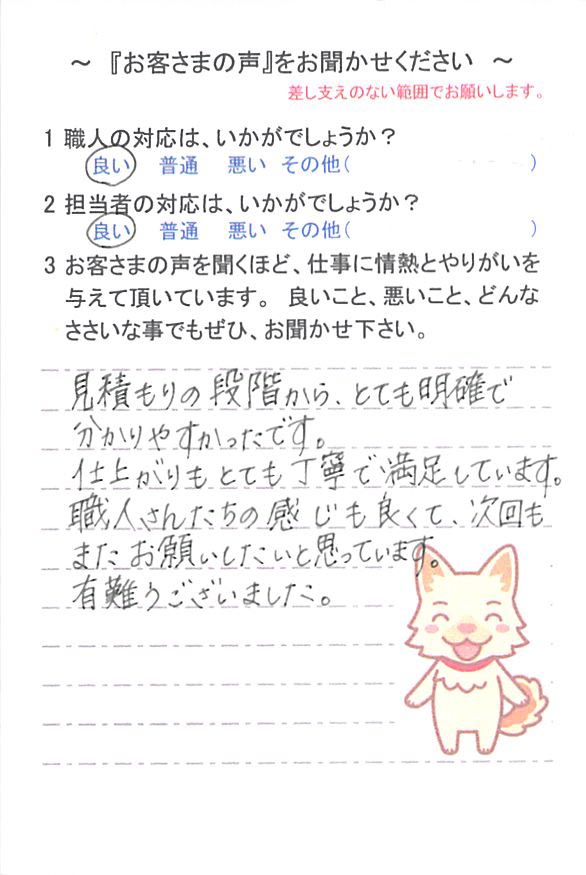 ～ 『お客さまの声』をお聞かせください ～
差し支えのない範囲でお願いします。
1 職人の対応は、いかがでしょうか？
良い 普通 悪い その他( )
2 担当者の対応は、いかがでしょうか？
良い 普通 悪い その他( )
3 お客さまの声を聞くほど、仕事に情熱とやりがいを
与えて頂いています。 良いこと、悪いこと、どんな
ささいな事でもぜひ、お聞かせ下さい。
見積もりの段階から、とても明確で
分かりやすかったです。
仕上がりもとても丁寧で満足しています。
職人さんたちの感じも良くて、次回も
またお願いしたいと思っています。
有難うございました。